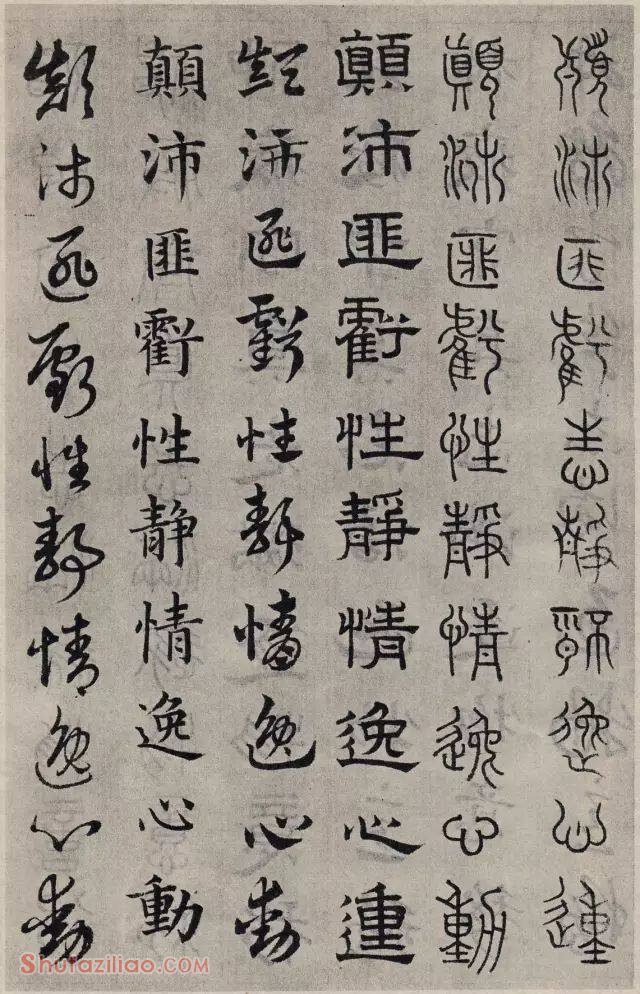 顛沛匪虧志靜情逸心動
顛沛匪虧性靜情逸心動
顛沛匪虧性靜情逸心運
顛沛匪虧性靜情逸心動
顛沛匪虧性静情逸心動
顛沛匪虧性靜情逸心動
Shufaziliao.COM